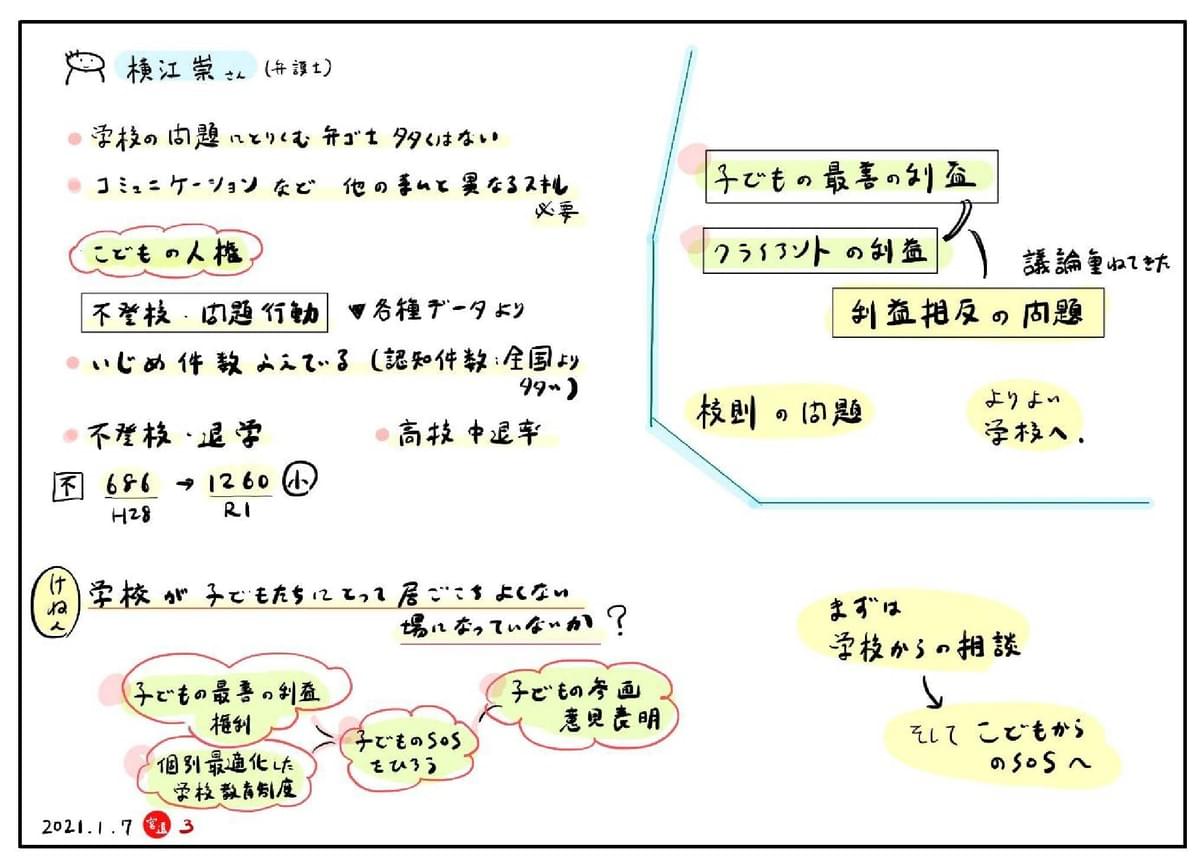 横江崇さん(弁護士)
学校の問題にとりくむ弁ゴ士多くはない
コミュニケーションなど 他の事ムと異なるスキル
必要
こどもの人権
不登校・問題行動 ▼各種データより
いじめ件数ふえている(認知件数:全国より
多い)
不登校・退学 高校中退率
不 686 → 1260 小
H28 R1
けねん 学校が子どもたちにとって居ごこちよくない
場になっていないか?
子どもの最善の利益
権利
個別最適化した
学校教育制度
子どものSOS
をひろう
子どもの参画
意見表明
2021.1.7 3
子どもの最善の利益
クライアントの利益
議論重ねてきた
利益相反の問題
校則の問題
よりよい
学校へ.
まずは
学校からの相談
そして こどもから
のSOSへ